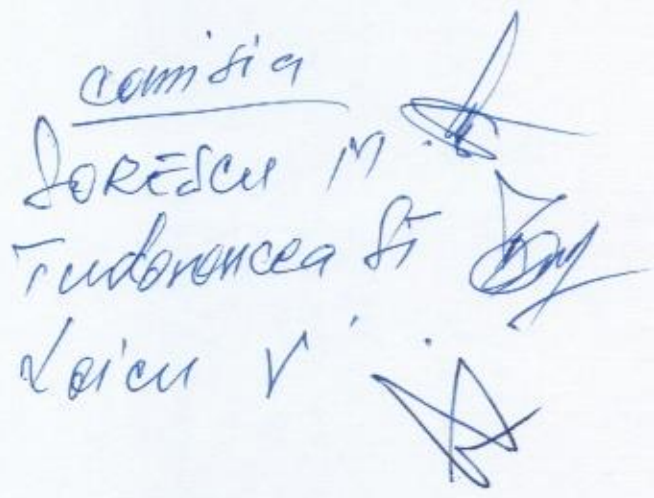 comisia
SORESCU M.
Tudoroncea Șt
Loicu V.